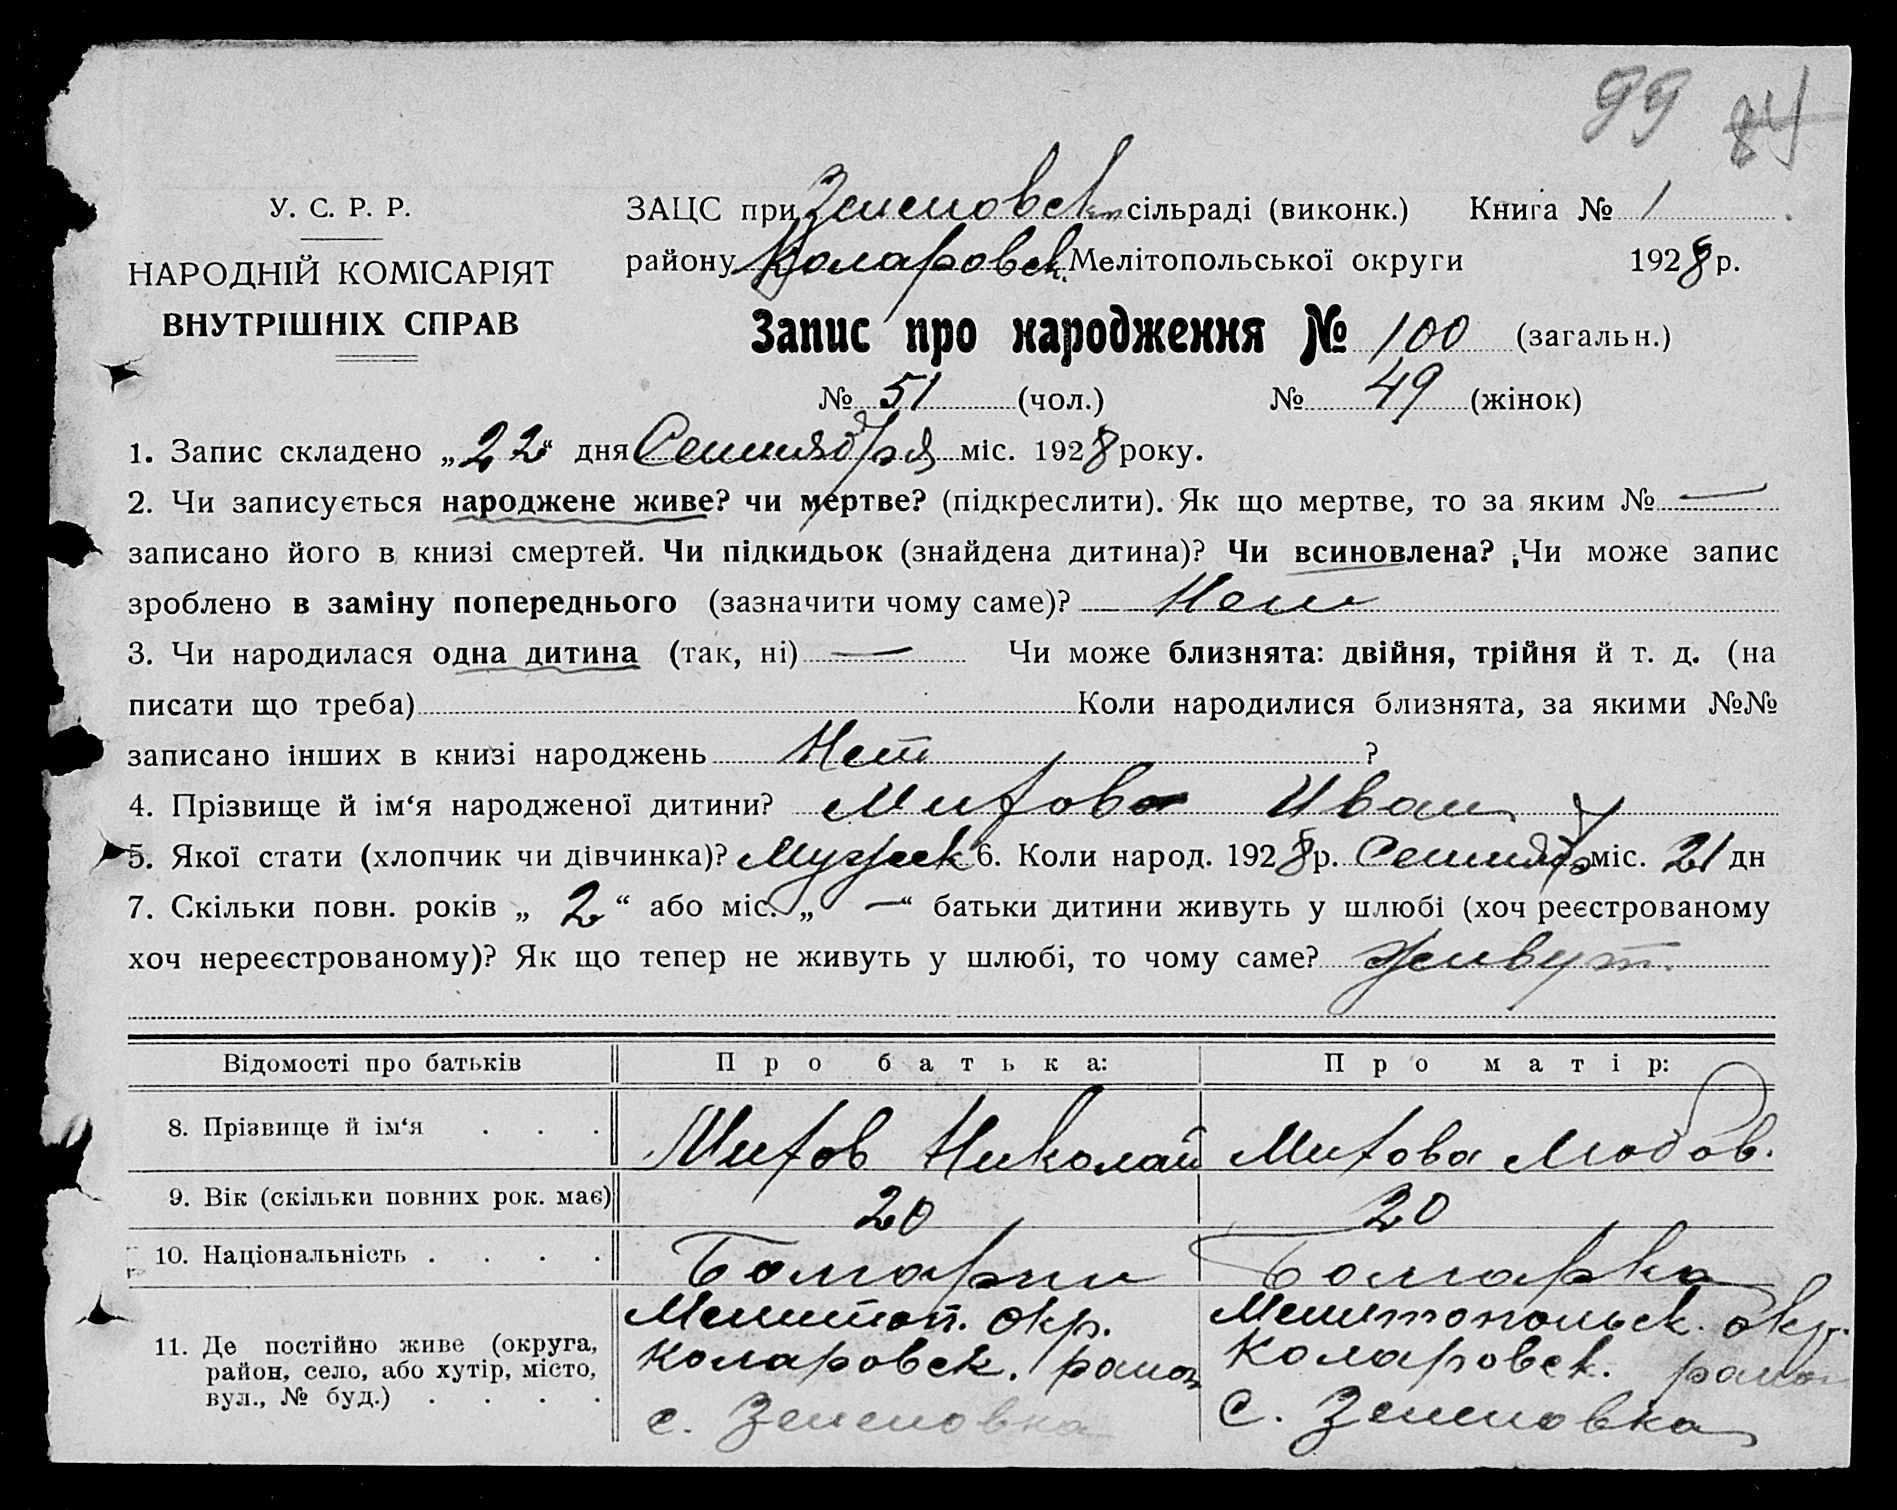 99 84
У. С. Р. Р.
НАРОДНІЙ КОМІСАРІЯТ
ВНУТРІШНІХ СПРАВ
ЗАЦС при Зеленовск сільраді (виконк.) Книга № 1
району Коларовск. Мелітопольської округи 1928 р.
Запис про народження № 100 (загальн.)
№ 51 (чол.) № 49 (жінок)
1. Запис складено „22“ дня Сентября міс. 1928 року.
2. Чи записується народжене живе? чи мертве? (підкреслити). Як що мертве, то за яким № —
записано його в книзі смертей. Чи підкидьок (знайдена дитина)? Чи всиновлена? Чи може запис
зроблено в заміну попереднього (зазначити чому саме)? — Нет
3. Чи народилася одна дитина (так, ні) — Чи може близнята: двійня, трійня й т. д. (на
писати що треба) Коли народилися близнята, за якими №№
записано інших в книзі народжень Нет ?
4. Прізвище й ім‘я народженої дитини? Митов Иван
5. Якої стати (хлопчик чи дівчинка)? Мужск 6. Коли народ. 1928 р. Сентябр міс. 21 дн
7. Скільки повн. років „ 2 “ або міс. „ — “ батьки дитини живуть у шлюбі (хоч реєстрованому
хоч нереєстрованому)? Як що тепер не живуть у шлюбі, то чому саме? живут.
Відомості про батьків Про батька: Про матір:
8. Прізвище й ім‘я . . . Митов Николай Митова Любов.
9. Вік (скільки повних рок. має) 20 20
10. Національність . . . . Болгарин Болгарка
11. Де постійно живе (округа,
район, село, або хутір, місто,
вул., № буд.) . . . .
Мелитоп. окр.
Коларовск. район
с. Зеленовка
Мелитопольск. окр.
Коларовск. район
с. Зеленовка